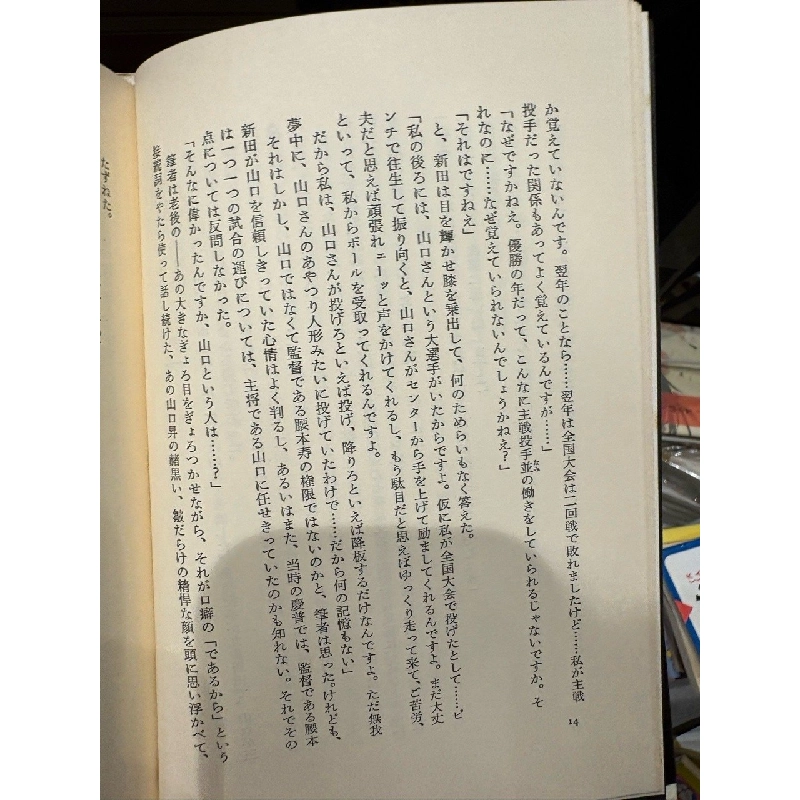 か覚えていないんです。翌年のことなら……翌年は全国大会は二回戦で敗れましたけど……私が主戦
投手だった関係もあってよく覚えているんですが……」
「なぜですかねえ。優勝の年だって、こんなに主戦投手並の働きをしていられるじゃないですか。そ
れなのに……なぜ覚えていられないんでしょうかねえ？」
「それはですねえ」
と、新田は目を輝かせ膝を乗出して、何のためらいもなく答えた。
「私の後ろには、山口さんという大選手がいたからですよ。仮に私が全国大会で投げたとして……ピ
ンチで往生して振り向くと、山口さんがセンターから手を上げて励ましてくれるんですよ。まだ大丈
夫だと思えば頑張れェーッと声をかけてくれるし、もう駄目だと思えばゆっくり走って来て、ご苦労、
といって、私からボールを受取ってくれるんですよ。
だから私は、山口さんが投げろといえば投げ、降りろといえば降板するだけなんですよ。ただ無我
夢中に、山口さんのあやつり人形みたいに投げていたわけで……だから何の記憶もない」
それはしかし、山口ではなくて監督である腰本寿の権限ではないのかと、筆者は思った。けれども、
新田が山口を信頼しきっていた心情はよく判るし、あるいはまた、当時の慶普では、監督である腰本
は一つ一つの試合の運びについては、主将である山口に任せきっていたのかも知れない。それでその
点については反問しなかった。
「そんなに偉かったんですか、山口という人は……？」
筆者は老後の――あの大きなぎょろ目をぎょろつかせながら、それが口癖の「であるから」という
接続詞をやたら使って話し続けた、あの山口昇の赭黒い、皺だらけの精悍な顔を頭に思い浮かべて、
たずねた。
14